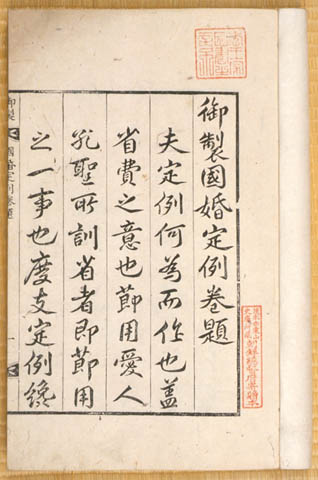 御製國婚定例卷題
夫定例何為而作也蓋
省費之意也節用愛人
孔聖所訓省者即節用
之一事也度支定例纔